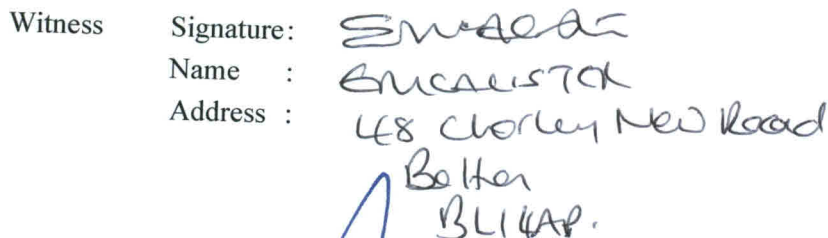 Witness Signature:
Name : EMCALISTER
Address : 48 Chorley New Road
Bolton
BL1 4AP.